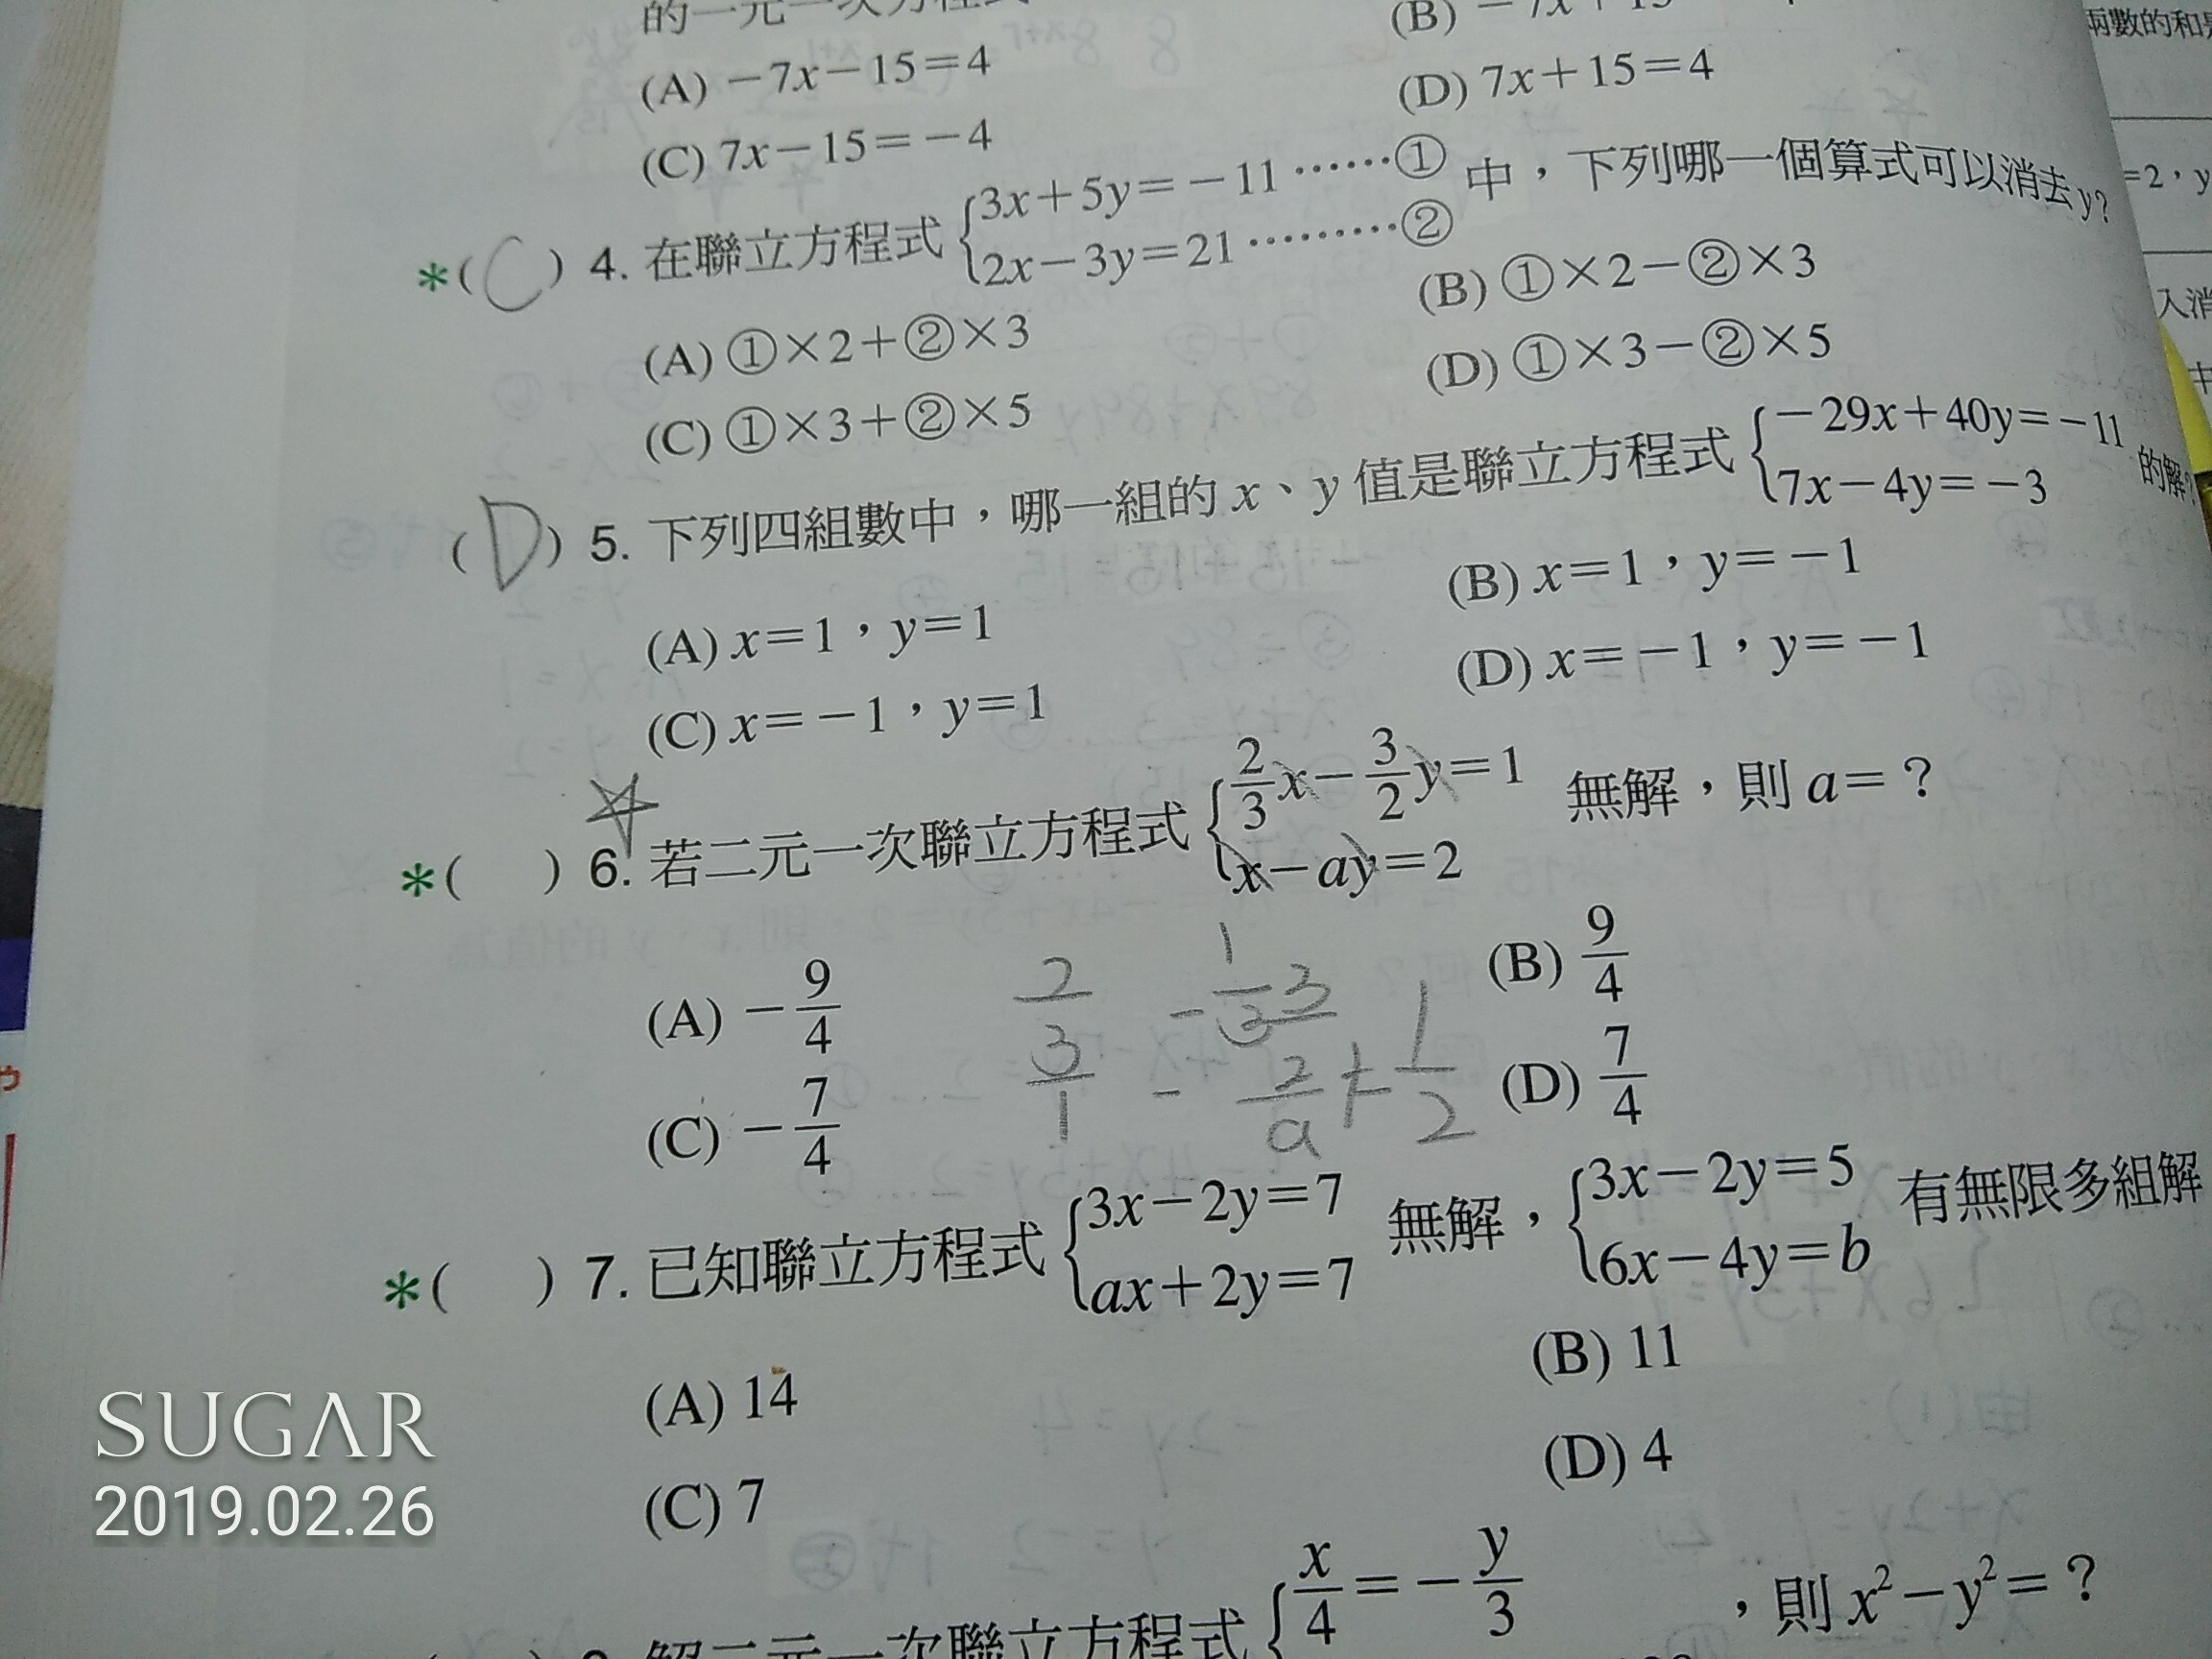 的一元一次方程式
(A) －7x－15＝4
(D) 7x＋15＝4
(C) 7x－15＝－4
*( C ) 4. 在聯立方程式 {3x＋5y＝－11 ……①
2x－3y＝21 ………② 中，下列哪一個算式可以消去y？
(A) ①×2＋②×3
(B) ①×2－②×3
(C) ①×3＋②×5
(D) ①×3－②×5
( D ) 5. 下列四組數中，哪一組的 x、y 值是聯立方程式 {－29x＋40y＝－11
7x－4y＝－3 的解？
(A) x＝1，y＝1
(B) x＝1，y＝－1
(C) x＝－1，y＝1
(D) x＝－1，y＝－1
*( ) 6. 若二元一次聯立方程式 {2/3x－3/2y＝1
x－ay＝2 無解，則 a＝？
(A) －9/4
(B) 9/4
(C) －7/4
(D) 7/4
*( ) 7. 已知聯立方程式 {3x－2y＝7
ax＋2y＝7 無解，{3x－2y＝5
6x－4y＝b 有無限多組解
(A) 14
(B) 11
(C) 7
(D) 4
解二元一次聯立方程式 {x/4＝－y/3 ，則 x²－y²＝？
兩數的和
＝2，y
入消
中
SUGAR
2019.02.26